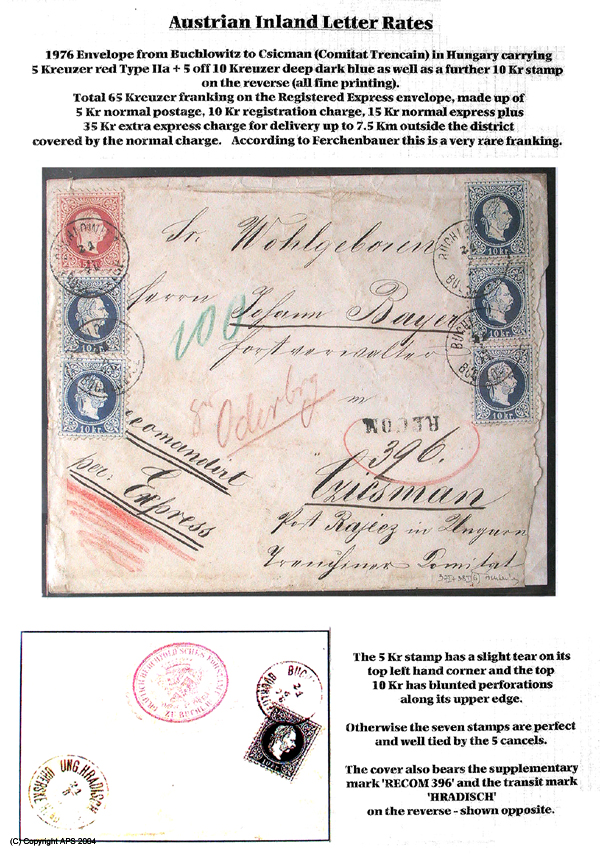 Austrian Inland Letter Rates
1976 Envelope from Buchlowitz to Csicman (Comitat Trencain) in Hungary carrying
5 Kreuzer red Type IIa + 5 off 10 Kreuzer deep dark blue as well as a further 10 Kr stamp
on the reverse (all fine printing).
Total 65 Kreuzer franking on the Registered Express envelope, made up of
5 Kr normal postage, 10 Kr registration charge, 15 Kr normal express plus
35 Kr extra express charge for delivery up to 7.5 Km outside the district
covered by the normal charge. According to Ferchenbauer this is a very rare franking.
Sr. Wohlgeboren
Herrn Johann Bayer
Forstverwalter
in
100
Oderbrg
RECOM
396.
Recomandirt
per Express
Czicsman
Post Rajecz in Ungarn
Trenchiner Comitat
10 kr.
10 kr.
10 kr.
10 kr.
10 kr.
The 5 Kr stamp has a slight tear on its
top left hand corner and the top
10 Kr has blunted perforations
along its upper edge.
Otherwise the seven stamps are perfect
and well tied by the 5 cancels.
The cover also bears the supplementary
mark 'RECOM 396' and the transit mark
'HRADISCH'
on the reverse - shown opposite.
UNG. HRADISCH
10 kr.
(C) Copyright APS 2004